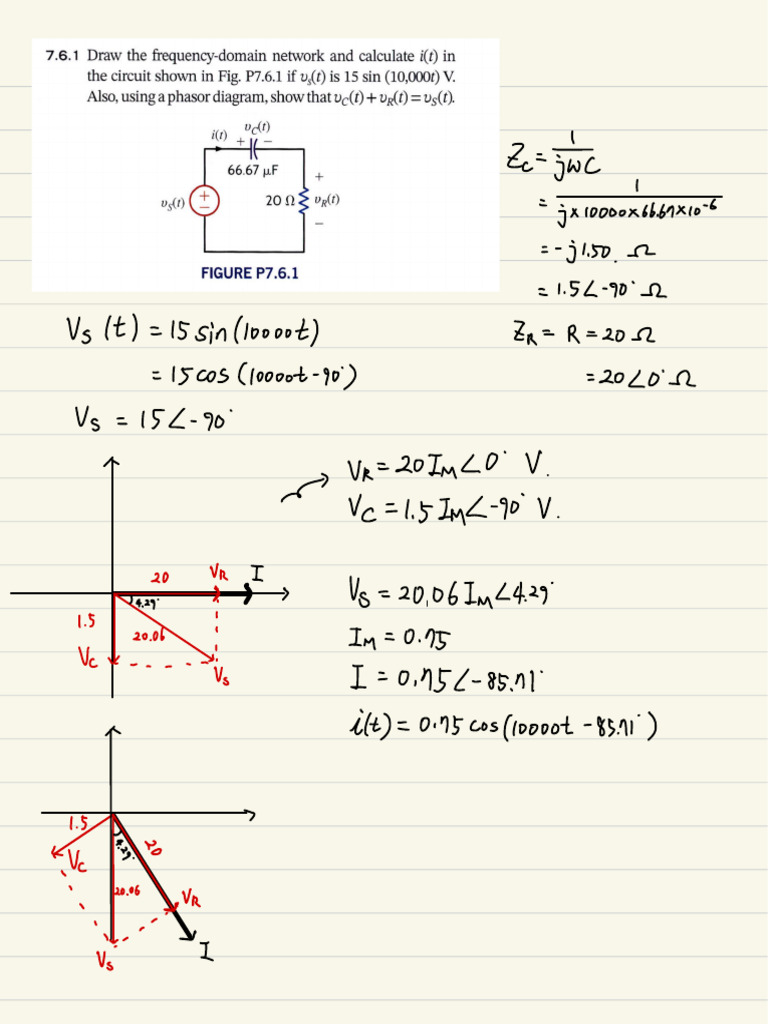 7.6.1 Draw the frequency-domain network and calculate i(t) in
the circuit shown in Fig. P7.6.1 if υs(t) is 15 sin (10,000t) V.
Also, using a phasor diagram, show that υC(t) + υR(t) = υS(t).
υC(t)
i(t) + −
66.67 μF
+
υS(t) + − 20 Ω υR(t)
−
FIGURE P7.6.1
Zc = 1/jωC
= 1/j×10000×66.67×10^-6
= -j1.50 Ω
= 1.5∠-90° Ω
ZR = R = 20 Ω
= 20∠0° Ω
Vs(t) = 15 sin(10000t)
= 15 cos(10000t-90°)
Vs = 15∠-90°
VR = 20IM∠0° V.
Vc = 1.5IM∠-90° V.
Vs = 20.06IM∠4.29°
IM = 0.75
I = 0.75∠-85.71°
i(t) = 0.75 cos(10000t-85.71°)
20 VR I
4.29°
1.5
20.06
Vc
Vs
1.5
4.29°
20
Vc
20.06
VR
I
Vs